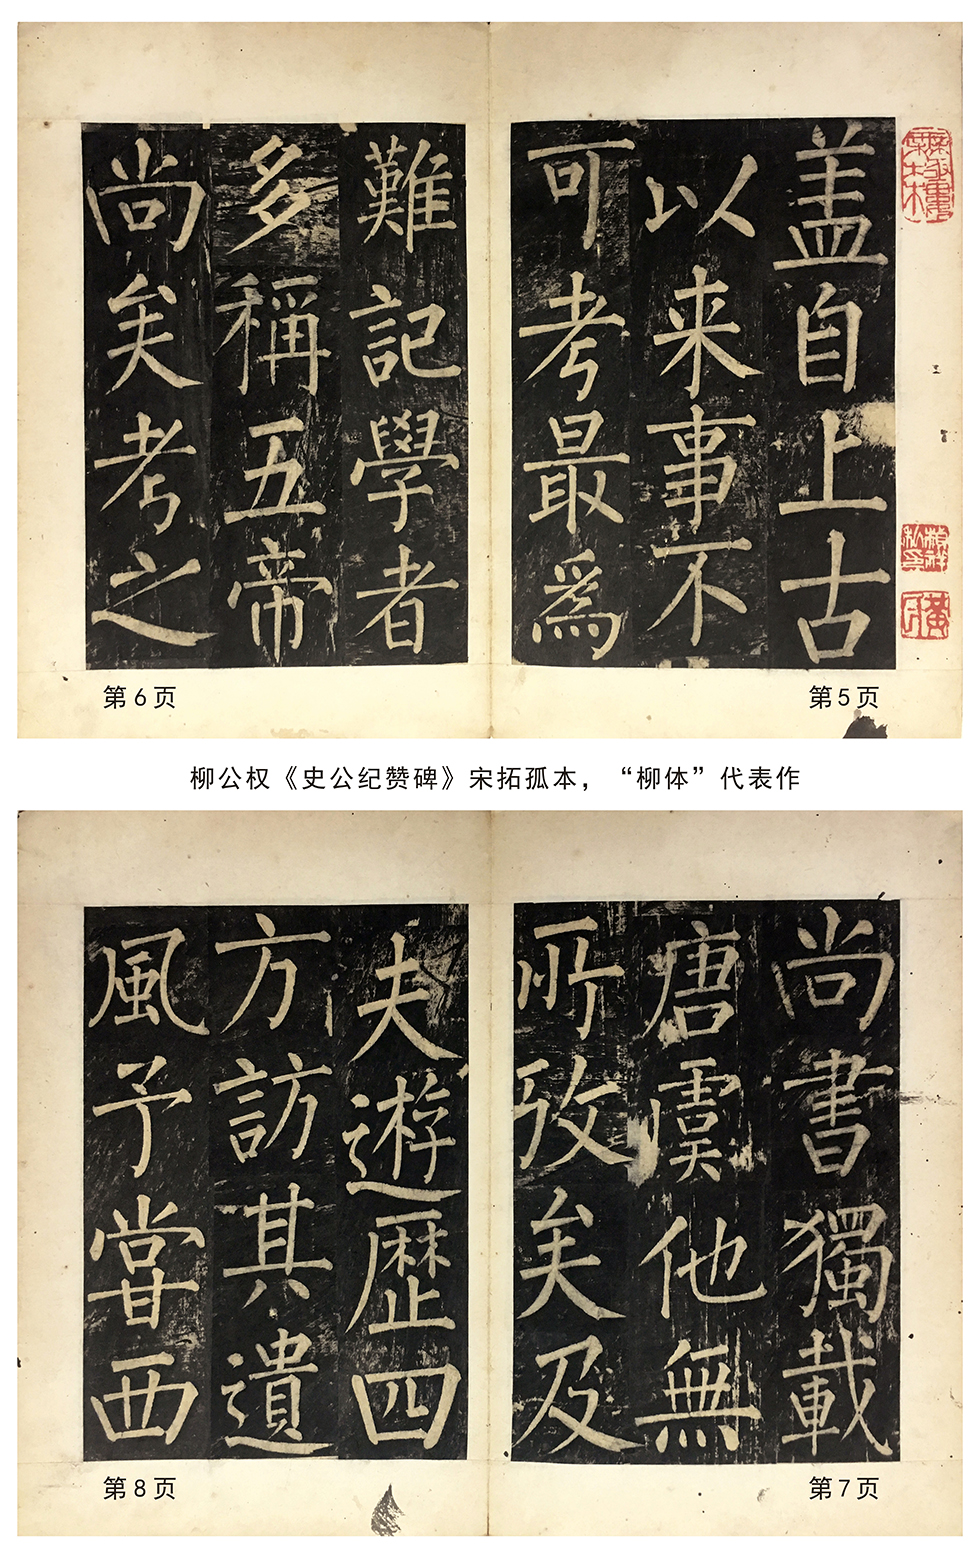 盖自上古
以来事不
可考最爲
第5页
難記學者
多稱五帝
尚矣考之
第6页
柳公权《史公纪赞碑》宋拓孤本，“柳体”代表作
尚書獨載
唐虞他無
所攷矣及
第7页
夫遊歴四
方訪其遺
風予甞西
第8页